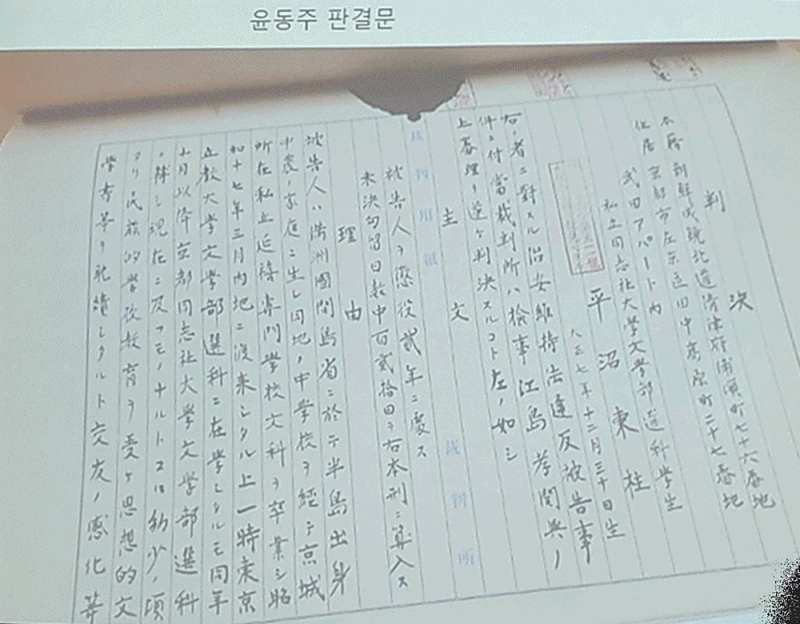 윤동주 판결문
判決
本籍 朝鮮咸鏡北道清津府浦項町七十六番地
住居 京都市左京区田中高原町二十七番地
武田アパート内
私立同志社大学文学部選科学生
平沼東柱
年十二月三十日生
右ノ者ニ対スル治安維持法違反被告事
件ニ付当裁判所ハ検事江島孝関与ノ
上審理ヲ遂ケ判決スルコト左ノ如シ
主文
被告人ヲ懲役弐年ニ処ス
未決勾留日数中百弐拾日ヲ右本刑ニ算入ス
理由
被告人ハ満洲國間島省ニ於テ半島出身
中農ノ家庭ニ生レ同地ノ中学校ヲ経テ京城
所在私立延禧専門学校文科ヲ卒業シ昭
和十七年三月内地ニ渡来シタル上一時東京
立教大学文学部選科ニ在学シタルモ同年
十月以降京都同志社大学文学部選科
ニ転シ現在ニ及フモノナルトコロ幼少ノ頃
ヨリ民族的学校教育ヲ受ケ思想的文
学書等ヲ耽読シタルト交友ノ感化等
裁判用紙
裁判所